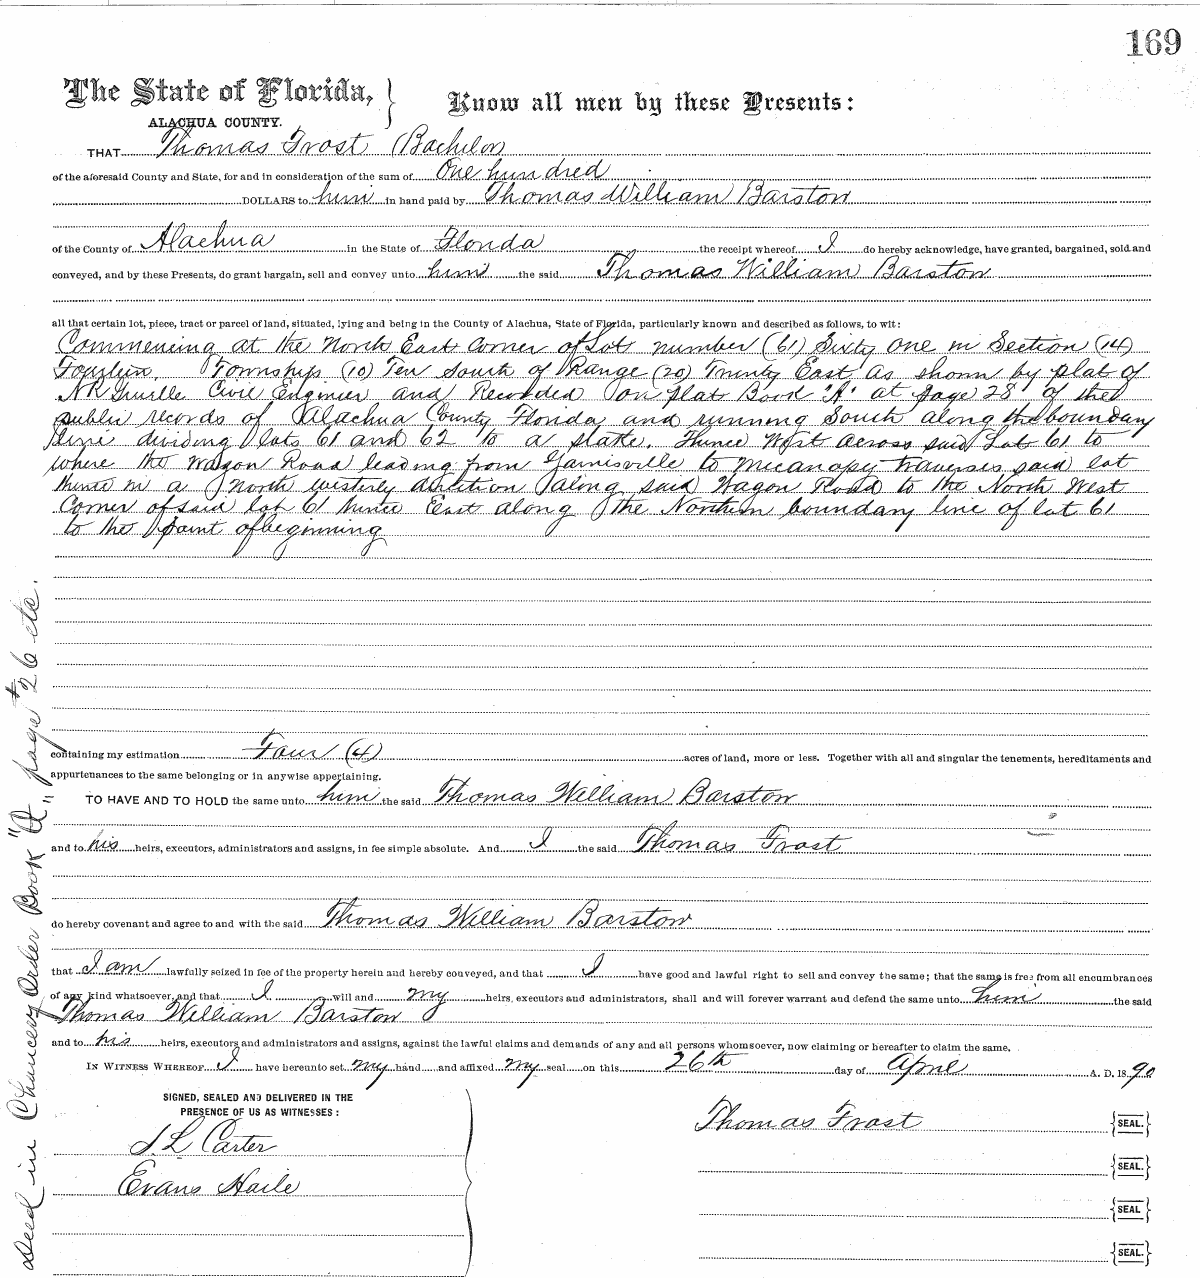 169
The State of Florida, } Know all men by these Presents:
ALACHUA COUNTY.
THAT Thomas Frost (Bachelor)
of the aforesaid County and State, for and in consideration of the sum of One hundred
DOLLARS to him in hand paid by Thomas William Barstow
of the County of Alachua in the State of Florida the receipt whereof I do hereby acknowledge, have granted, bargained, sold and
conveyed, and by these Presents, do grant bargain, sell and convey unto him the said Thomas William Barstow
all that certain lot, piece, tract or parcel of land, situated, lying and being in the County of Alachua, State of Florida, particularly known and described as follows, to wit:
Commencing at the North East Corner of Lot number (61) Sixty One in Section (14)
Fourteen Townships (10) Ten South of Range (20) Twenty East as shown by plat of
N R Civil Engineer and Recorded on plat Book "A" at page 28 of the
public records of Alachua County Florida and running South along the boundary
line dividing lots 61 and 62 to a stake. thence West across said Lot 61 to
where the Wagon Road leading from Gainisville to Micanopy traverses said lot
thence in a North westerly direction along said Wagon Road to the North West
Corner of said lot 61 thence East along the Northern boundary line of lot 61
to the point of beginning
containing my estimation Four (4) acres of land, more or less. Together with all and singular the tenements, hereditaments and
appurtenances to the same belonging or in anywise appertaining.
TO HAVE AND TO HOLD the same unto him the said Thomas William Barstow
and to his heirs, executors, administrators and assigns, in fee simple absolute. And I the said Thomas Frost
do hereby covenant and agree to and with the said Thomas William Barstow
that I am lawfully seized in fee of the property herein and hereby conveyed, and that I have good and lawful right to sell and convey the same; that the same is free from all encumbrances
of any kind whatsoever, and that I will and my heirs, executors and administrators, shall and will forever warrant and defend the same unto him the said
Thomas William Barstow
and to his heirs, executors and administrators and assigns, against the lawful claims and demands of any and all persons whomsoever, now claiming or hereafter to claim the same.
IN WITNESS WHEREOF I have hereunto set my hand and affixed my seal on this 26th day of April A. D. 1890
SIGNED, SEALED AND DELIVERED IN THE
PRESENCE OF US AS WITNESSES:
Thomas Frost {SEAL.}
J. L. Carter
{SEAL.}
Evans Haile
{SEAL}
{SEAL.}
Deed in Chancery Order Book "A", page #26 etc.